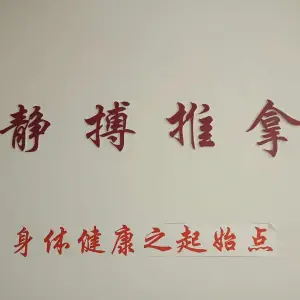 静搏推拿
身体健康之起始点